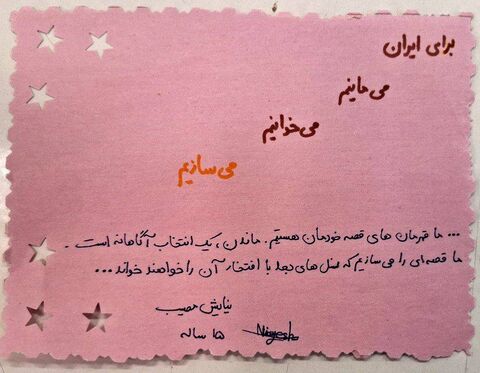 برای ایران
می مانیم
می خوانیم
می سازیم
... ما قهرمان های قصه خودمان هستیم. ماندن، یک انتخاب آگاهانه است.
ما قصه ای را می سازیم که نسل های بعد با افتخار آن را خواهند خواند...
نیایش مصیب
Niyesh
۱۵ ساله